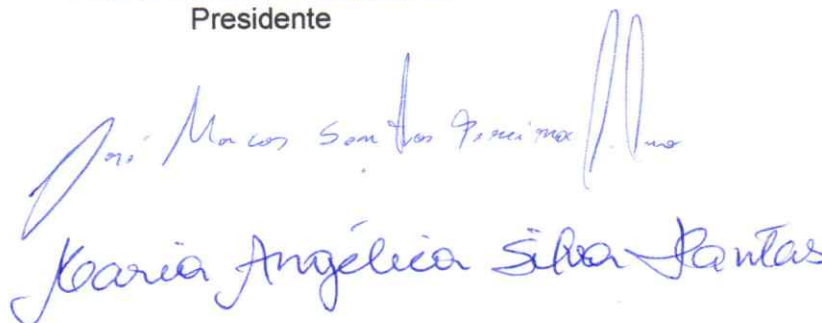 Presidente
José Marcos Santos
Maria Angélica Silva Dantas